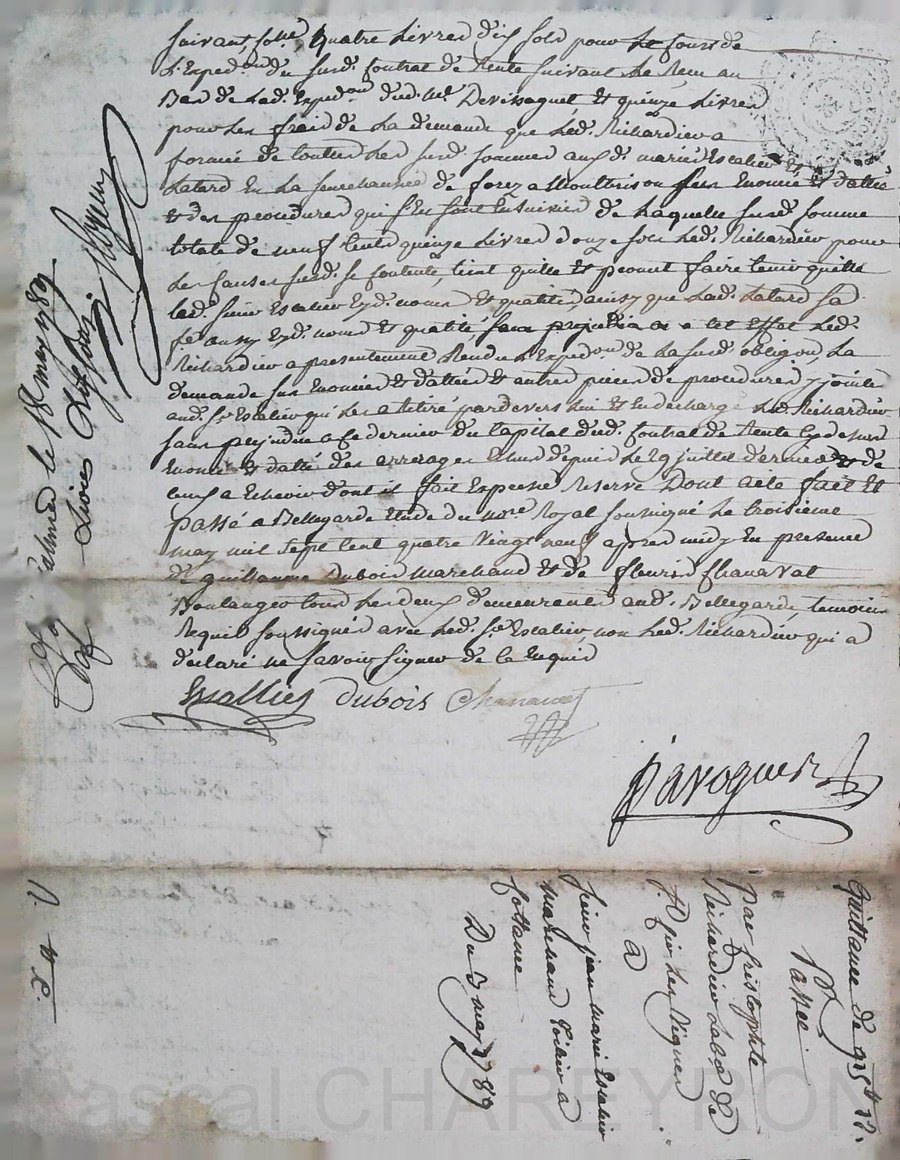 suivant, quatre Livres dix sols pour le cours de
L'Exped.on du susd. Contrat de Rente suivant le Recu au
Bas de lad. Exped.on dud. Me. Devissaguet Et quinze Livres
pour les frais de la demande que led. Richardier a
formée de toutes les susd. sommes aux d. mariés Escalier Et
Latard En la senechaussée de forez a Montbrison sus Enoncée Et dattée
Et des procedures qui s'En sont Ensuivies De Laquelle susd. somme
totale de neuf Cents quinze Livres douze sols Led. Richardier pour
les causes susd. se Contente, tient quitte Et promet faire tenir quitte
led. sieur Escalier Esd. noms Et qualités, ainsy que lad. Latard sa
fe aussy Esd. noms Et qualité, sans prejudice a cet Effet Led.
Richardier a presentement Rendu L'Exped.on de la susd. oblig.on, La
demande sus Enoncée Et dattée Et autres pieces de procedures y jointe
aud. Sr. Escalier qui les a retiré pardevers lui Et En decharge led. Richardier
sans prejudice a ce dernier du Capital dud. Contrat de Rente Cy dessus
Enoncé Et datté des arrerages Echus depuis le 29 juillet dernier Et de
ceux a Echeoir dont il fait Expresse Reserve Dont acte fait Et
passé a Bellegarde Etude du nore. Royal soussigné Le troisieme
may mil sept Cent quatre Vingt neuf apres midy En presence
de guillaume Dubois Marchand Et de fleuris Chanavat
Boulanger tous les deux demeurants aud. Bellegarde, temoins
Requis soussignés avec Led. Sr. Escalier, non Led. Richardier qui a
declaré ne savoir signer de ce Enquis
Escallier dubois Chanavat
Pavoguer
le 18 may 1789
Livres
Quittance de 915tt 12s.
Passée
par Cristophle
Richardier Labr. de
St. Cyr Les Vignes
a
Sieur jean marie Escalier
marchand Voiturier a
Cottance
Du 3 may 1789
Pascal CHAREYRON